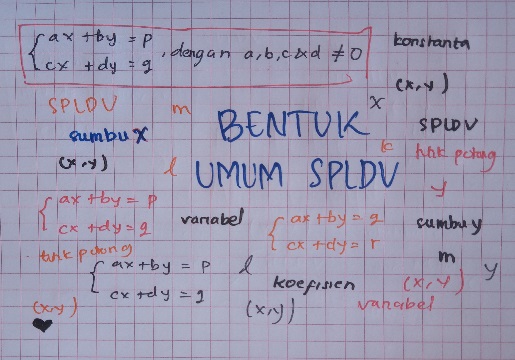 ax + by = p
cx + dy = q , dengan a, b, c & d ≠ 0
konstanta
(x, y)
SPLDV
m
x
BENTUK
SPLDV
sumbu x
k
titik potong
(x, y)
l
UMUM SPLDV
y
ax + by = p
cx + dy = q
variabel
ax + by = q
cx + dy = r
sumbu y
titik potong
m
ax + by = p
cx + dy = q
l
koefisien
(x, y)
y
(x, y)
(x, y)
variabel